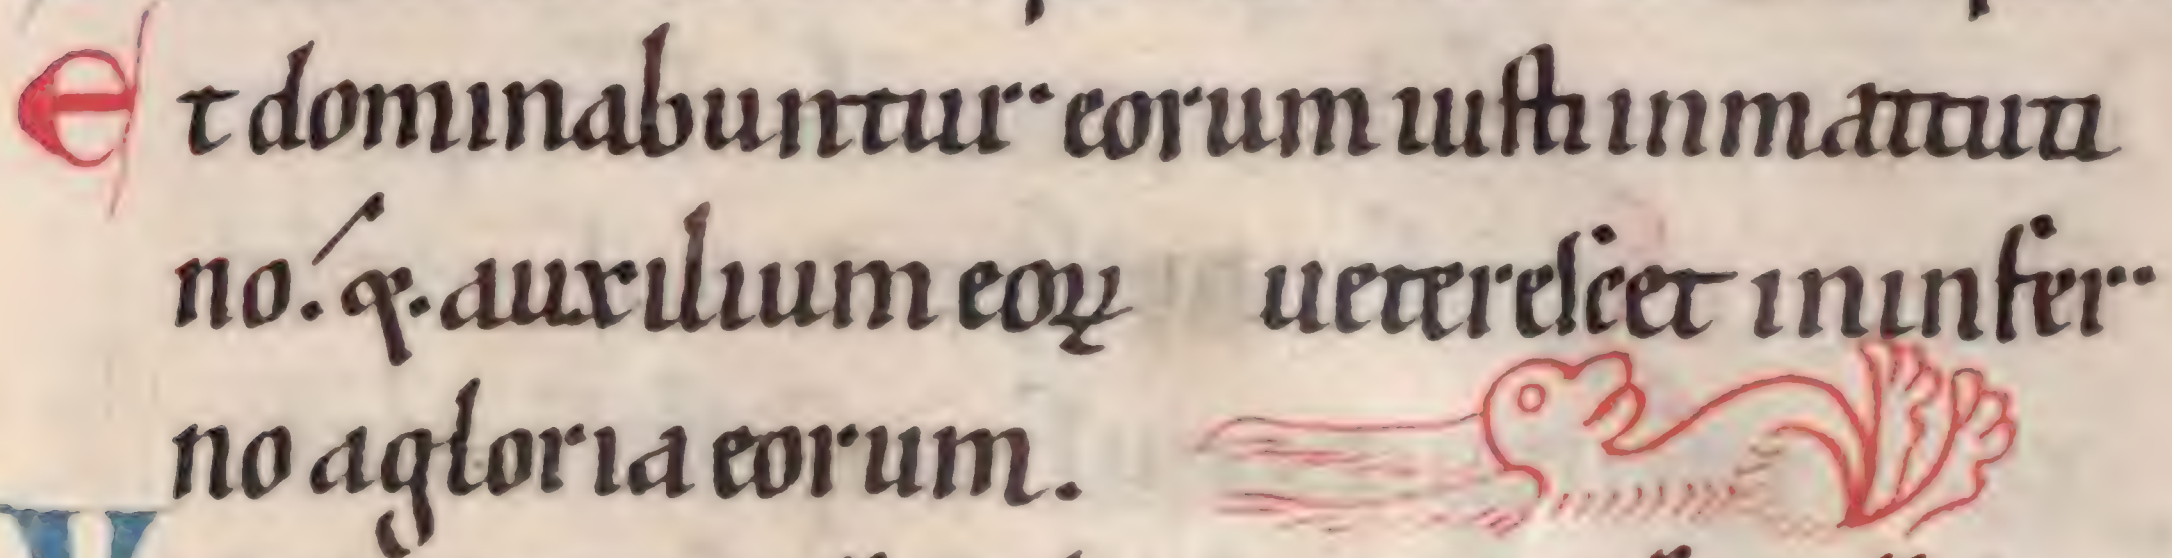 Et dominabuntur eorum iusti in matuti
no. ꝙ. auxilium eoꝝ ueterescet in infer
no a gloria eorum.